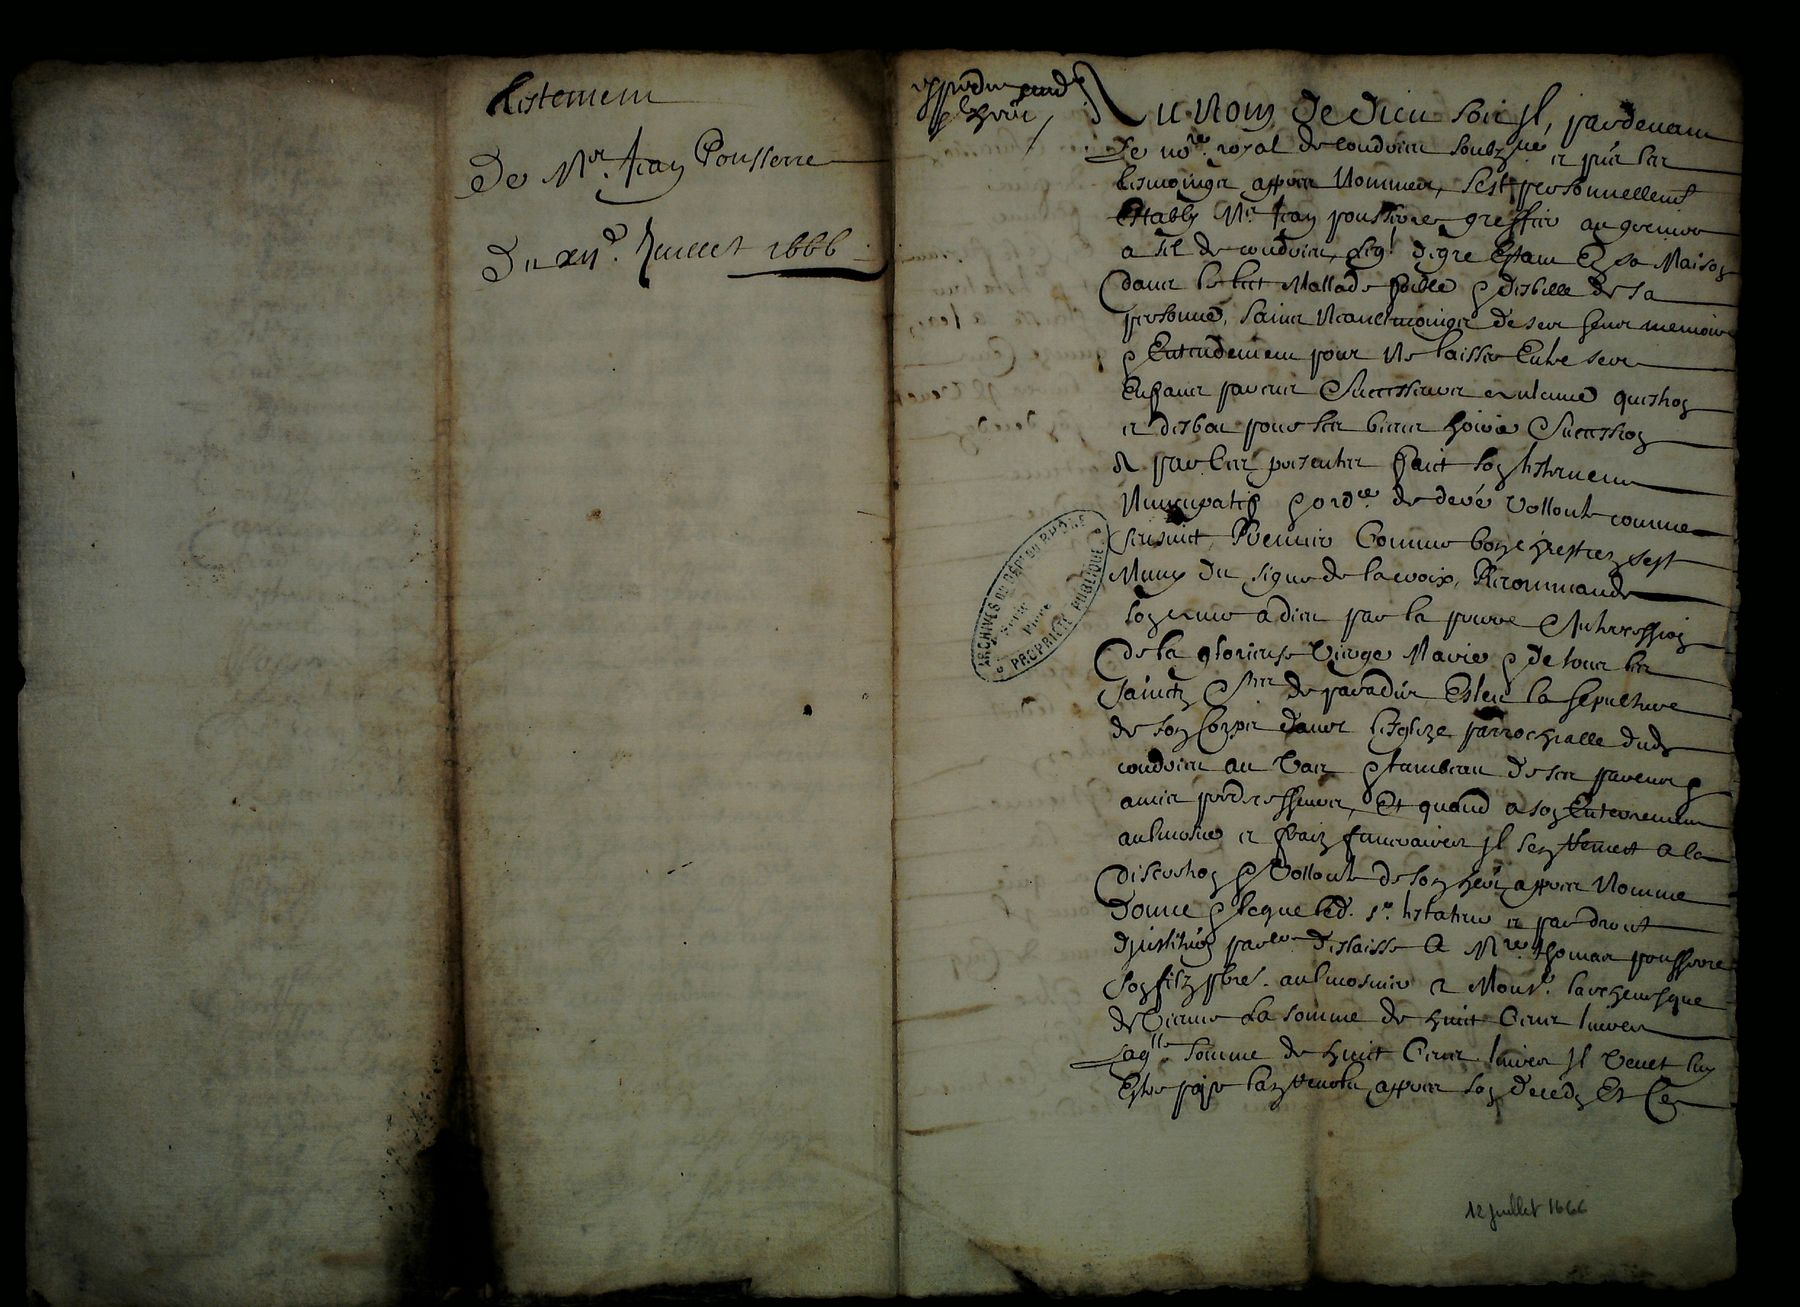 Testement
De Mre Jean Pousserre
Du xiie. Juillet 1666
expedie aud
heri
Au Nom de Dieu soit il, pardevant
Le nore. royal de condrieu soubzne et pnt les
tesmoings appres nommes, s'est personnellemt
estably Mre Jean pousserre greffier au grenier
a sel de condrieu, leql. de gre estant en sa Maison
dans le lict Mallade foible & debille de sa
personne, saint neantmoings de ses sens memoire
& entendement pour ne laisser entre ses
enfans parens successeurs aulcune question
et desbat pour ses biens hoirie succession
A par ces presentes faict son testement
Nuncupatif & ordce. de derre vollonte comme
sensuit, Premier Comme bon chrestien sest
Muny du signe de la croix, Recommande
son ame a dieu par la priere intercession
de la glorieuse Vierge Marie & de tous les
sainctz & stes de paradis Esleu la sepulture
de son Corps dans l'esglize parrochialle dudt
condrieu au Vas & tumbeau de ses parens &
amis predecesseurs, Et quand a son Enterrement
aulmosne et fraiz funeraires il s'en remet a la
discretion & vollonte de son heri. appres nomme
donne & legue led. sr. testateur et par droit
d'institution parre delaisse A Mre. thomas pousserre
son filz pbre. aulmosnier a Monsr. larchevesque
de Vienne La somme de huict Cens livres
Laqlle somme de huict Cens livres il veut luy
Estre paye lan revolu appres son decedz Et Ce
ARCHIVES DU DÉPT DU RHÔNE
PROPRIÉTÉ PUBLIQUE
12 juillet 1666